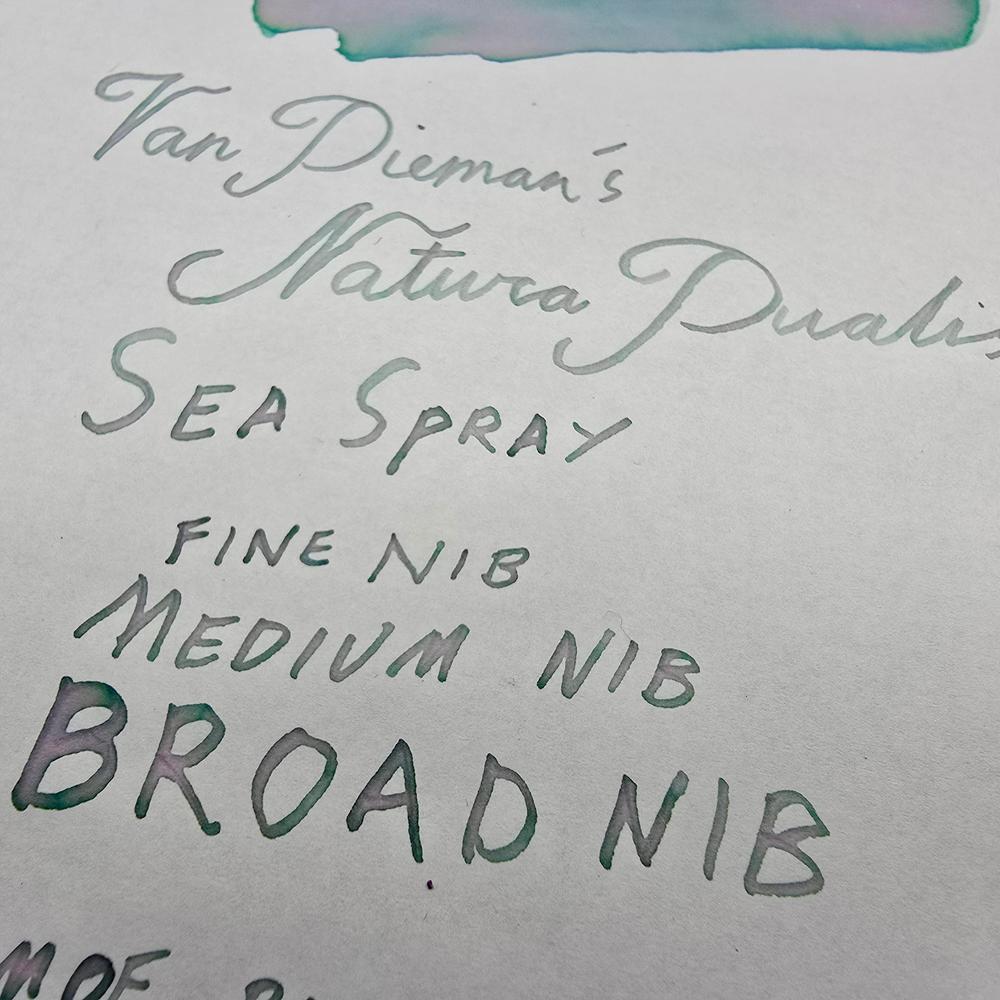 Van Dieman's
Natura Dualis
SEA SPRAY
FINE NIB
MEDIUM NIB
BROAD NIB